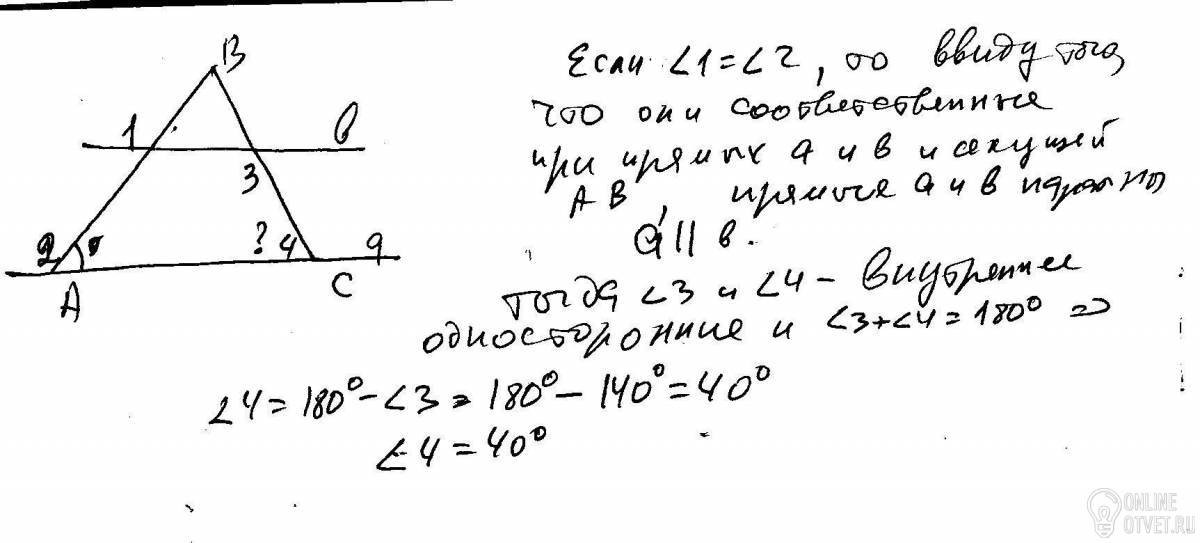 B
1
в
3
2
? 4
а
A
C
Если ∠1=∠2, то ввиду того
что они соответственные
при прямых а и в и секущей
AB, прямые а и в
а || в.
тогда ∠3 и ∠4 - внутренние
односторонние и ∠3+∠4=180° =>
∠4=180°-∠3=180°-140°=40°
∠4=40°
ONLINE
OTVET.RU